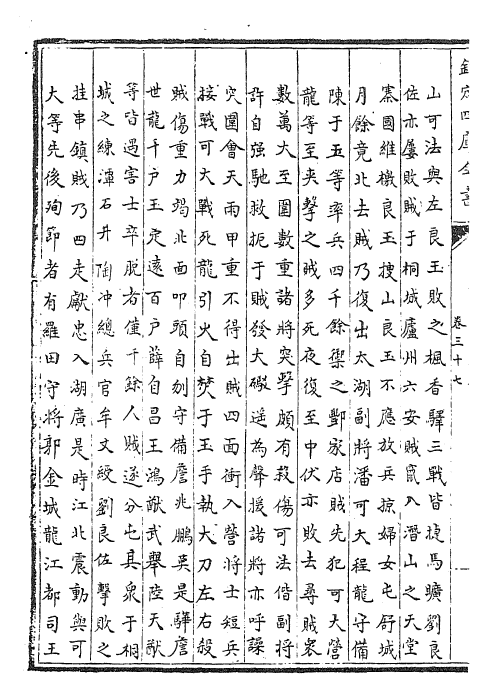 欽定四庫全書
卷三十七
山可法與左良玉敗之楓香驛三戰皆捷馬爌劉良
佐亦屢敗賊于桐城廬州六安賊竄入潛山之天堂
寨國維檄良玉搜山良玉不應放兵掠婦女屯舒城
月餘竟北去賊乃復出太湖副將潘可大程龍守備
陳于王等率兵四千餘禦之酆家店賊先犯可大營
龍等至夾擊之賊多死夜復至中伏亦敗去尋賊衆
數萬大至圍數重諸將突擊頗有殺傷可法偕副將
許自强馳救扼于賊發大礮遥為聲援諸將亦呼譟
突圍會天雨甲重不得出賊四面衝入營將士短兵
接戰可大戰死龍引火自焚于王手執大刀左右殺
賊傷重力竭北面叩頭自刎守備詹兆鵬莫是驊詹
世龍千户王定遠百户薛自昌王鴻猷武舉陸天猷
等皆遇害士卒脫者僅千餘人賊遂分屯其衆于桐
城之練潭石井陶冲總兵官牟文綬劉良佐擊敗之
挂車鎮賊乃四走獻忠入湖廣是時江北震動與可
大等先後殉節者有羅田守將郭金城龍江都司王